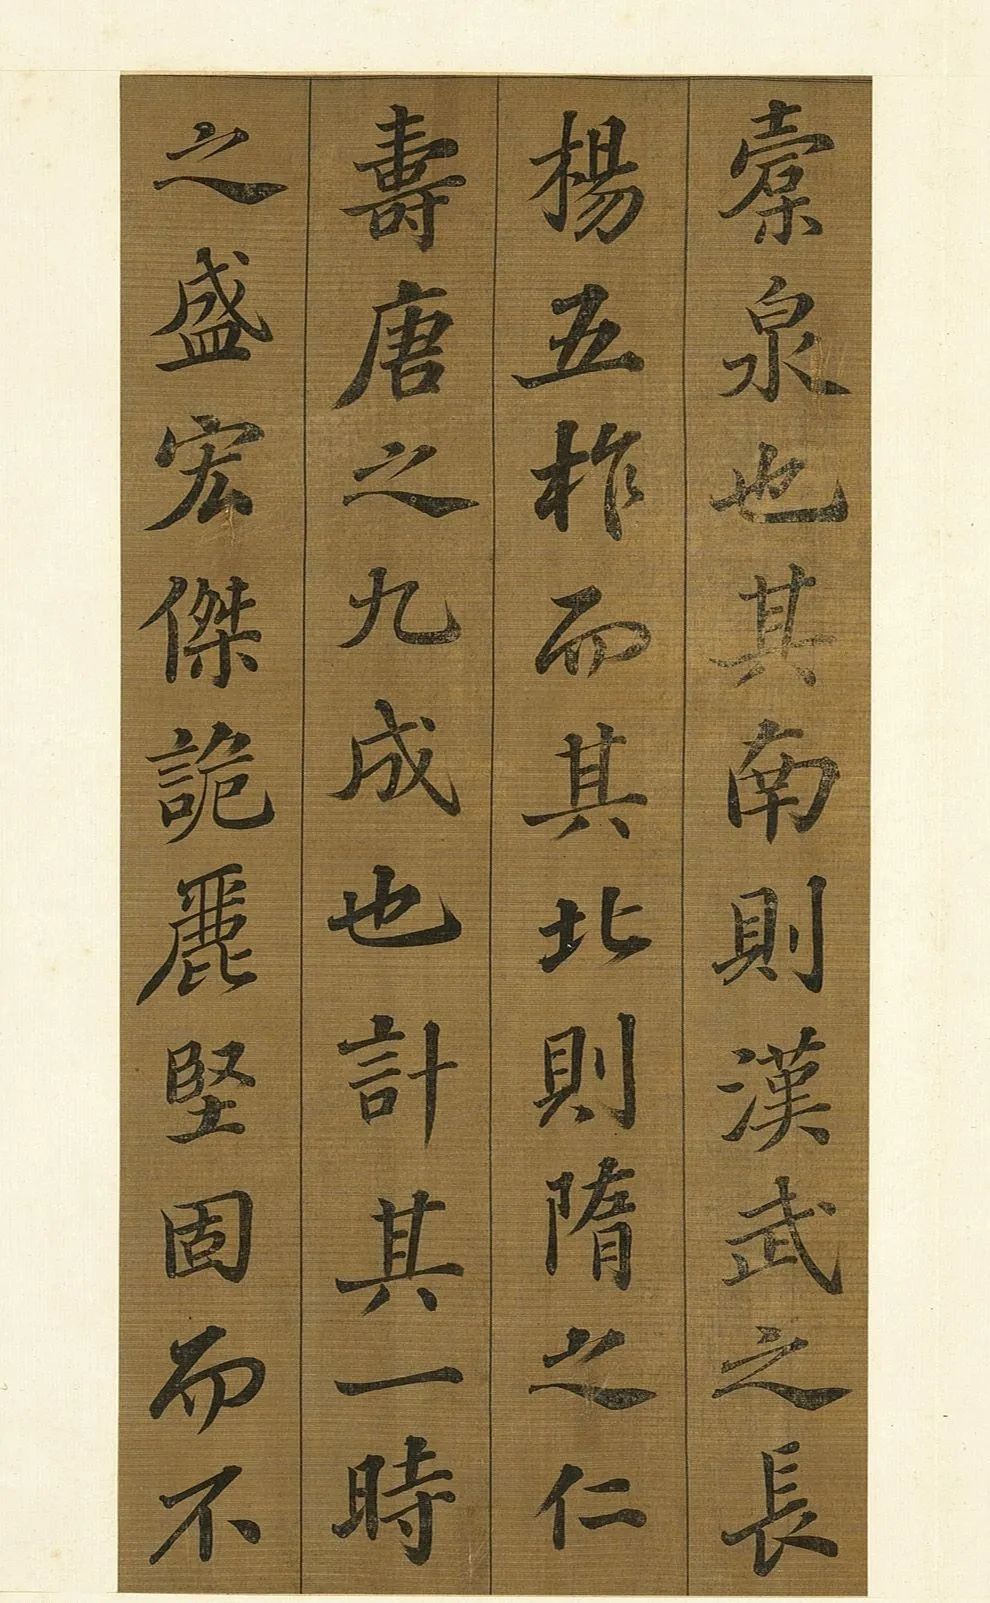 橐泉也其南則漢武之長
楊五柞而其北則隋之仁
壽唐之九成也計其一時
之盛宏傑詭麗堅固而不